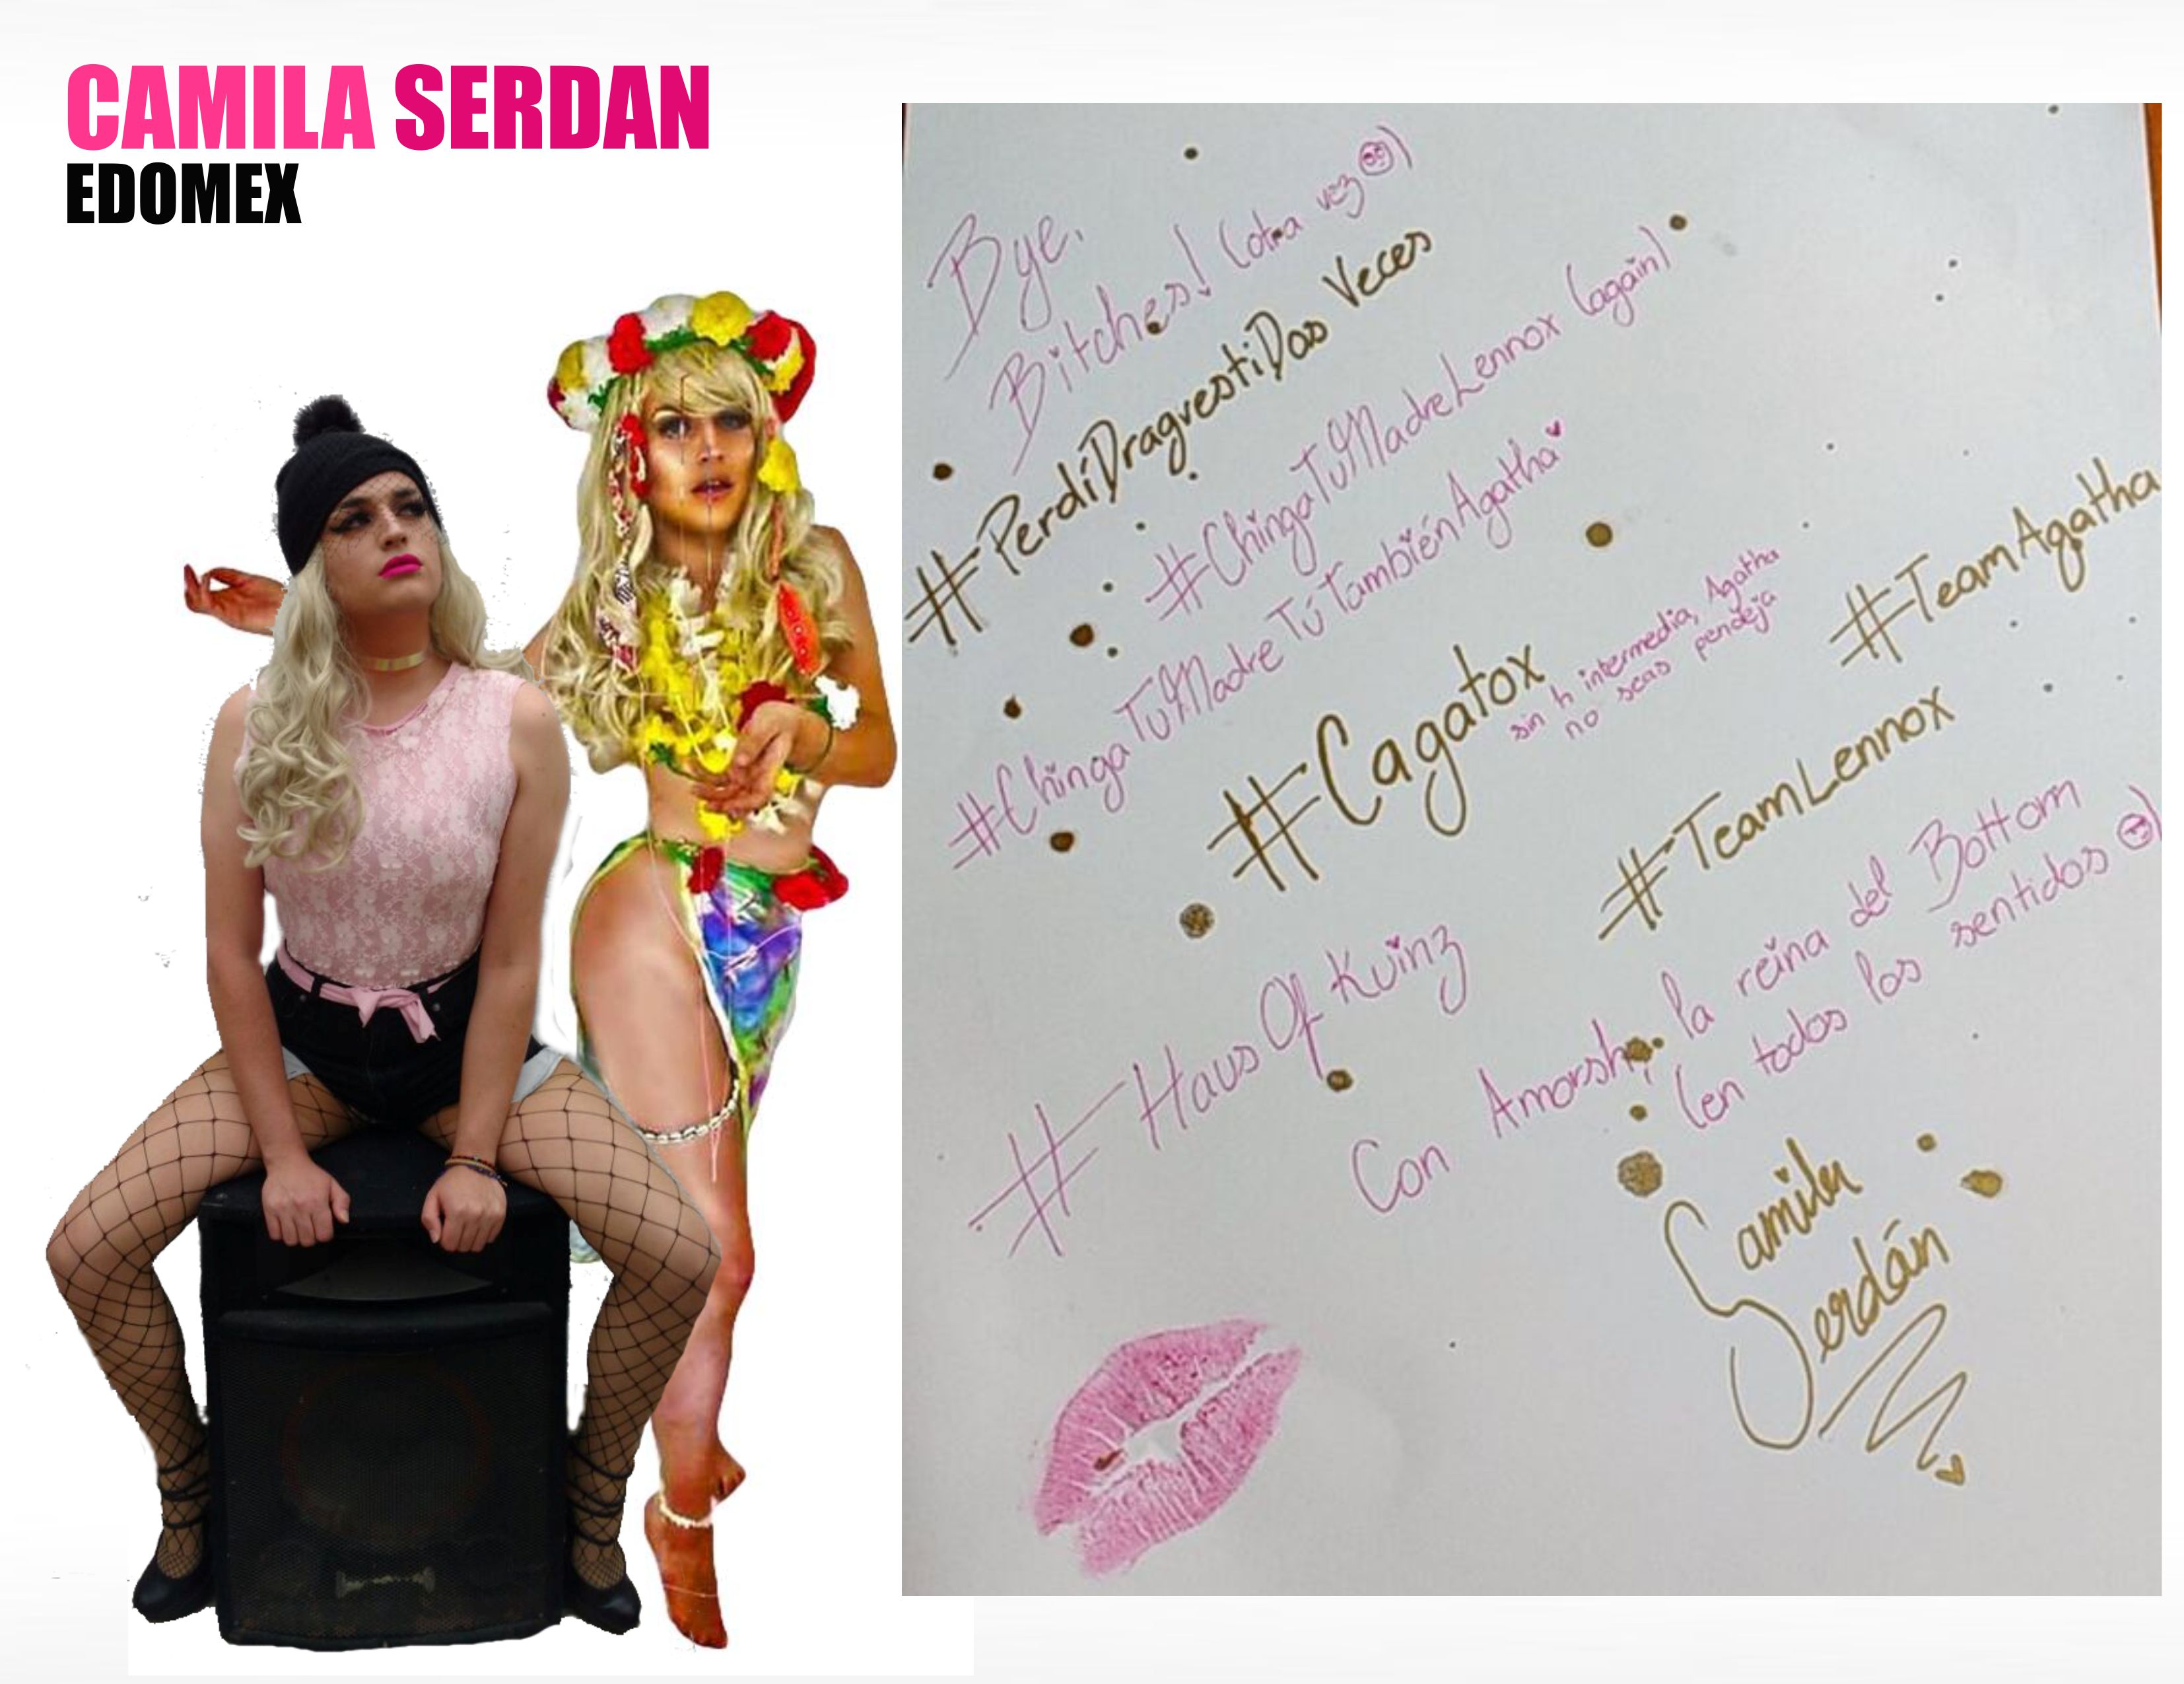 CAMILA SERDAN
EDOMEX
Bye,
Bitches! (otra vez )
#PerdíDragvestiDos Veces
#ChingaTuMadreLennox (again)
#ChingaTuMadreTúTambiénAgatha
#Cagatox
sin h intermedia, Agatha
no seas pendeja
#TeamAgatha
#TeamLennox
#HausOfKuinz
Con Amorsh, la reina del Bottom
(en todos los sentidos )
Camila
Serdán